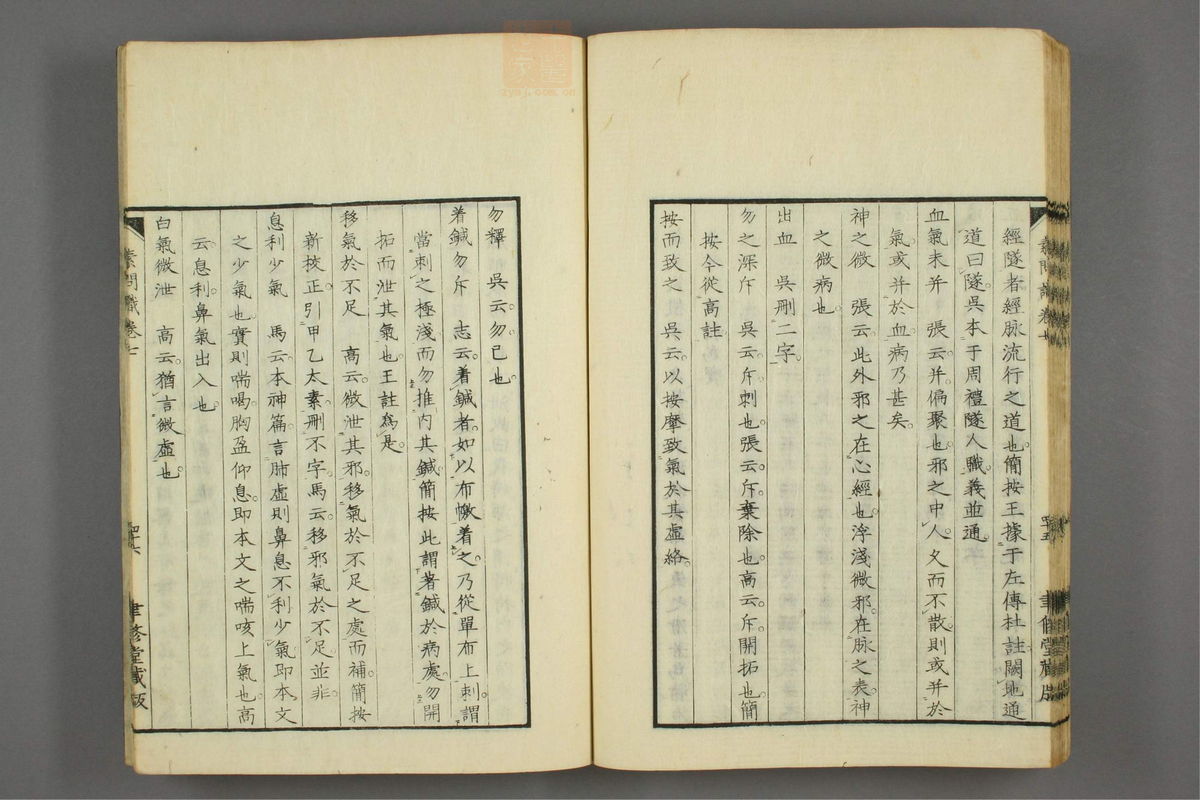 經隧者經脉流行之道也簡按王據于左傳杜註闕地通
道曰隧吳本于周禮隧人職義並通
血氣未并　張云并偏聚也邪之中人久而不散則或并於
氣或并於血病乃甚矣
神之微　張云此外邪之在心經也浮淺微邪在脉之表神
之微病也
出血　吳刪二字
勿之深斥　吳云斥刺也張云斥棄除也高云斥開拓也簡
按今從高註
按而致之　吳云以按摩致氣於其虛絡
素問識卷七
四十五
聿修堂藏版
勿釋　吳云勿已也
着鍼勿斥　志云着鍼者如以布憿着之乃從單布上刺謂
當刺之極淺而勿推內其鍼簡按此謂著鍼於病處勿開
拓而泄其氣也王註爲是
移氣於不足　高云微泄其邪移氣於不足之處而補簡按
新校正引甲乙太素刪不字馬云移邪氣於不足並非
息利少氣　馬云本神篇言肺虛則鼻息不利少氣即本文
之少氣也實則喘喝胸盈仰息即本文之喘咳上氣也高
云息利鼻氣出入也
白氣微泄　高云猶言微虛也
素問識卷七
四十六
聿修堂藏版